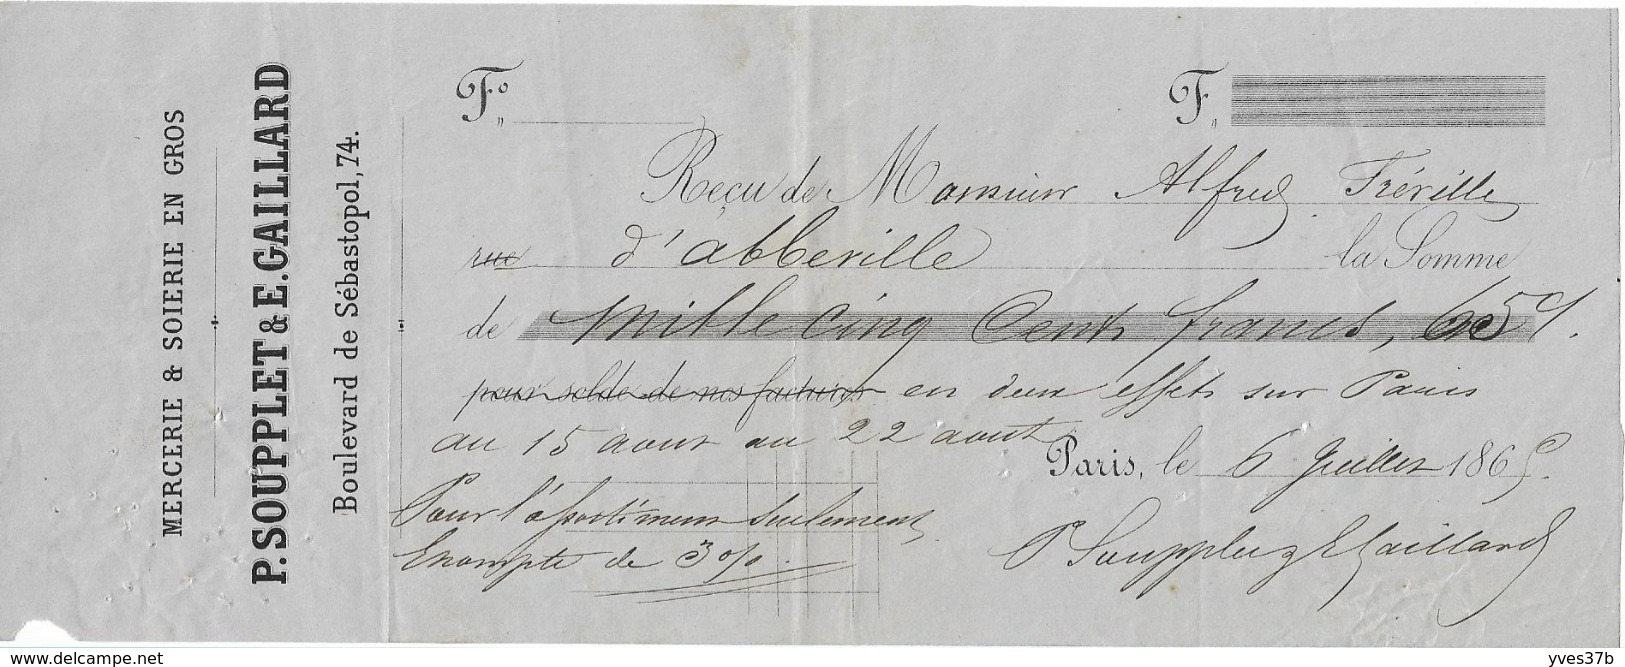 MERCERIE & SOIERIE EN GROS
P. SOUPPLET & E. GAILLARD
Boulevard de Sébastopol, 74.
Fo F
Reçu de Monsieur Alfred Fréville
rue d'abbeville la Somme
de Mille cinq Cents francs, 65 c/.
pour solde de nos factures en deux effets sur Paris
au 15 aout au 22 aout
Paris, le 6 Juillet 1865
Pour l'assortiment seulement
Escompte de 3%.
P Soupplet & E Gaillard
www.delcampe.net yves37b